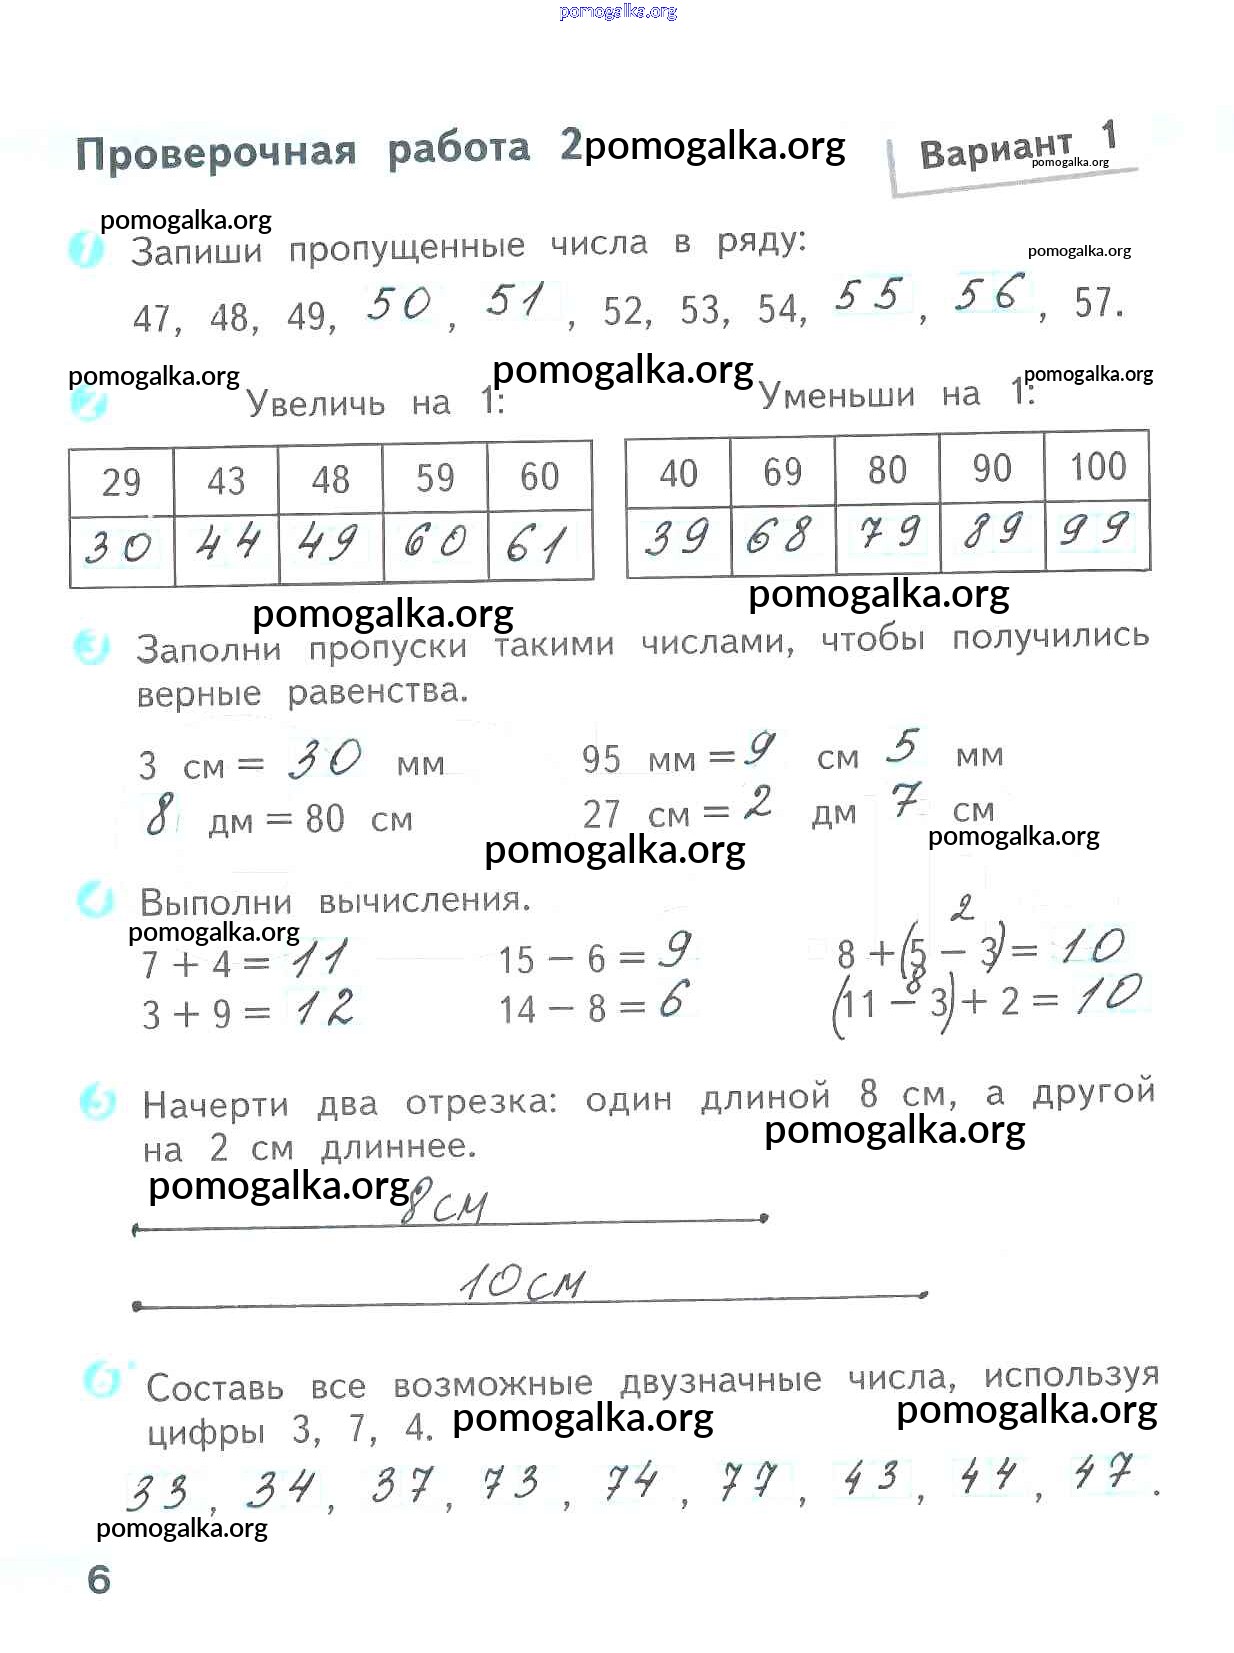 pomogalka.org
Проверочная работа 2pomogalka.org
Вариант 1
pomogalka.org
pomogalka.org
1 Запиши пропущенные числа в ряду:
pomogalka.org
47, 48, 49, 50, 51, 52, 53, 54, 55, 56, 57.
pomogalka.org pomogalka.org pomogalka.org
2 Увеличь на 1: Уменьши на 1:
29 43 48 59 60 40 69 80 90 100
30 44 49 60 61 39 68 79 89 99
pomogalka.org pomogalka.org
3 Заполни пропуски такими числами, чтобы получились
верные равенства.
3 см = 30 мм 95 мм = 9 см 5 мм
8 дм = 80 см 27 см = 2 дм 7 см
pomogalka.org pomogalka.org
4 Выполни вычисления.
pomogalka.org
2
7 + 4 = 11 15 − 6 = 9 8 + (5 − 3) = 10
8
3 + 9 = 12 14 − 8 = 6 (11 − 3) + 2 = 10
5 Начерти два отрезка: один длиной 8 см, а другой
на 2 см длиннее.
pomogalka.org
pomogalka.org
8 см
10 см
6 Составь все возможные двузначные числа, используя
цифры 3, 7, 4.
pomogalka.org pomogalka.org
33, 34, 37, 73, 74, 77, 43, 44, 47.
pomogalka.org
6